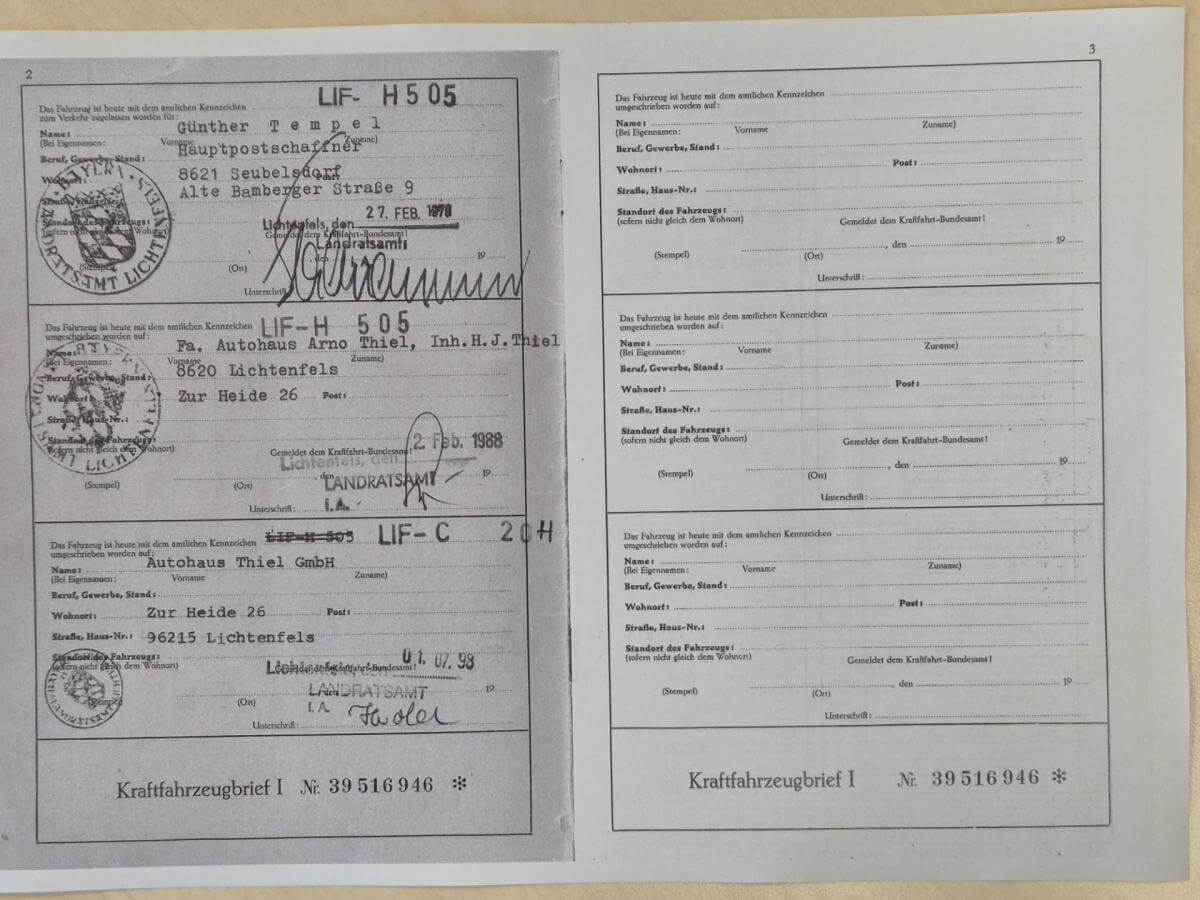 2
LIF- H 505
Das Fahrzeug ist heute mit dem amtlichen Kennzeichen
zum Verkehr zugelassen worden für:
Name: Günther Tempel
(Bei Eigennamen: Vorname Zuname)
Hauptpostschaffner
Beruf, Gewerbe, Stand:
8621 Seubelsdorf
Alte Bamberger Straße 9
27. FEB. 1970
Lichtenfels, den
Gemeldet dem Kraftfahrt-Bundesamt!
Landratsamt:
(Ort) 19
Unterschrift:
BAYERN LANDRATSAMT LICHTENFELS
Das Fahrzeug ist heute mit dem amtlichen Kennzeichen LIF-H 505
umgeschrieben worden auf:
Name: Fa. Autohaus Arno Thiel, Inh.H.J.Thiel
(Bei Eigennamen: Vorname Zuname)
Beruf, Gewerbe, Stand: 8620 Lichtenfels
Wohnort: Zur Heide 26 Post:
Straße, Haus-Nr.:
Standort des Fahrzeugs:
(sofern nicht gleich dem Wohnort) Gemeldet dem Kraftfahrt-Bundesamt! 2. Feb. 1988
Lichtenfels, den
(Stempel) (Ort) den LANDRATSAMT 19
Unterschrift: I.A.
Das Fahrzeug ist heute mit dem amtlichen Kennzeichen LIF-H 505 LIF- C 204
umgeschrieben worden auf:
Name: Autohaus Thiel GmbH
(Bei Eigennamen: Vorname Zuname)
Beruf, Gewerbe, Stand:
Wohnort: Zur Heide 26 Post:
Straße, Haus-Nr.: 96215 Lichtenfels
Standort des Fahrzeugs:
(sofern nicht gleich dem Wohnort) 01. 07. 98
LANDRATSAMT 19
(Ort) I. A.
Unterschrift:
Kraftfahrzeugbrief I Nr. 39 516 946 *
3
Das Fahrzeug ist heute mit dem amtlichen Kennzeichen
umgeschrieben worden auf:
Name:
(Bei Eigennamen: Vorname Zuname)
Beruf, Gewerbe, Stand:
Wohnort: Post:
Straße, Haus-Nr.:
Standort des Fahrzeugs:
(sofern nicht gleich dem Wohnort) Gemeldet dem Kraftfahrt-Bundesamt!
, den 19
(Stempel) (Ort)
Unterschrift:
Das Fahrzeug ist heute mit dem amtlichen Kennzeichen
umgeschrieben worden auf:
Name:
(Bei Eigennamen: Vorname Zuname)
Beruf, Gewerbe, Stand:
Wohnort: Post:
Straße, Haus-Nr.:
Standort des Fahrzeugs:
(sofern nicht gleich dem Wohnort) Gemeldet dem Kraftfahrt-Bundesamt!
, den 19
(Stempel) (Ort)
Unterschrift:
Das Fahrzeug ist heute mit dem amtlichen Kennzeichen
umgeschrieben worden auf:
Name:
(Bei Eigennamen: Vorname Zuname)
Beruf, Gewerbe, Stand:
Wohnort: Post:
Straße, Haus-Nr.:
Standort des Fahrzeugs:
(sofern nicht gleich dem Wohnort) Gemeldet dem Kraftfahrt-Bundesamt!
, den 19
(Stempel) (Ort)
Unterschrift:
Kraftfahrzeugbrief I Nr. 39 516 946 *